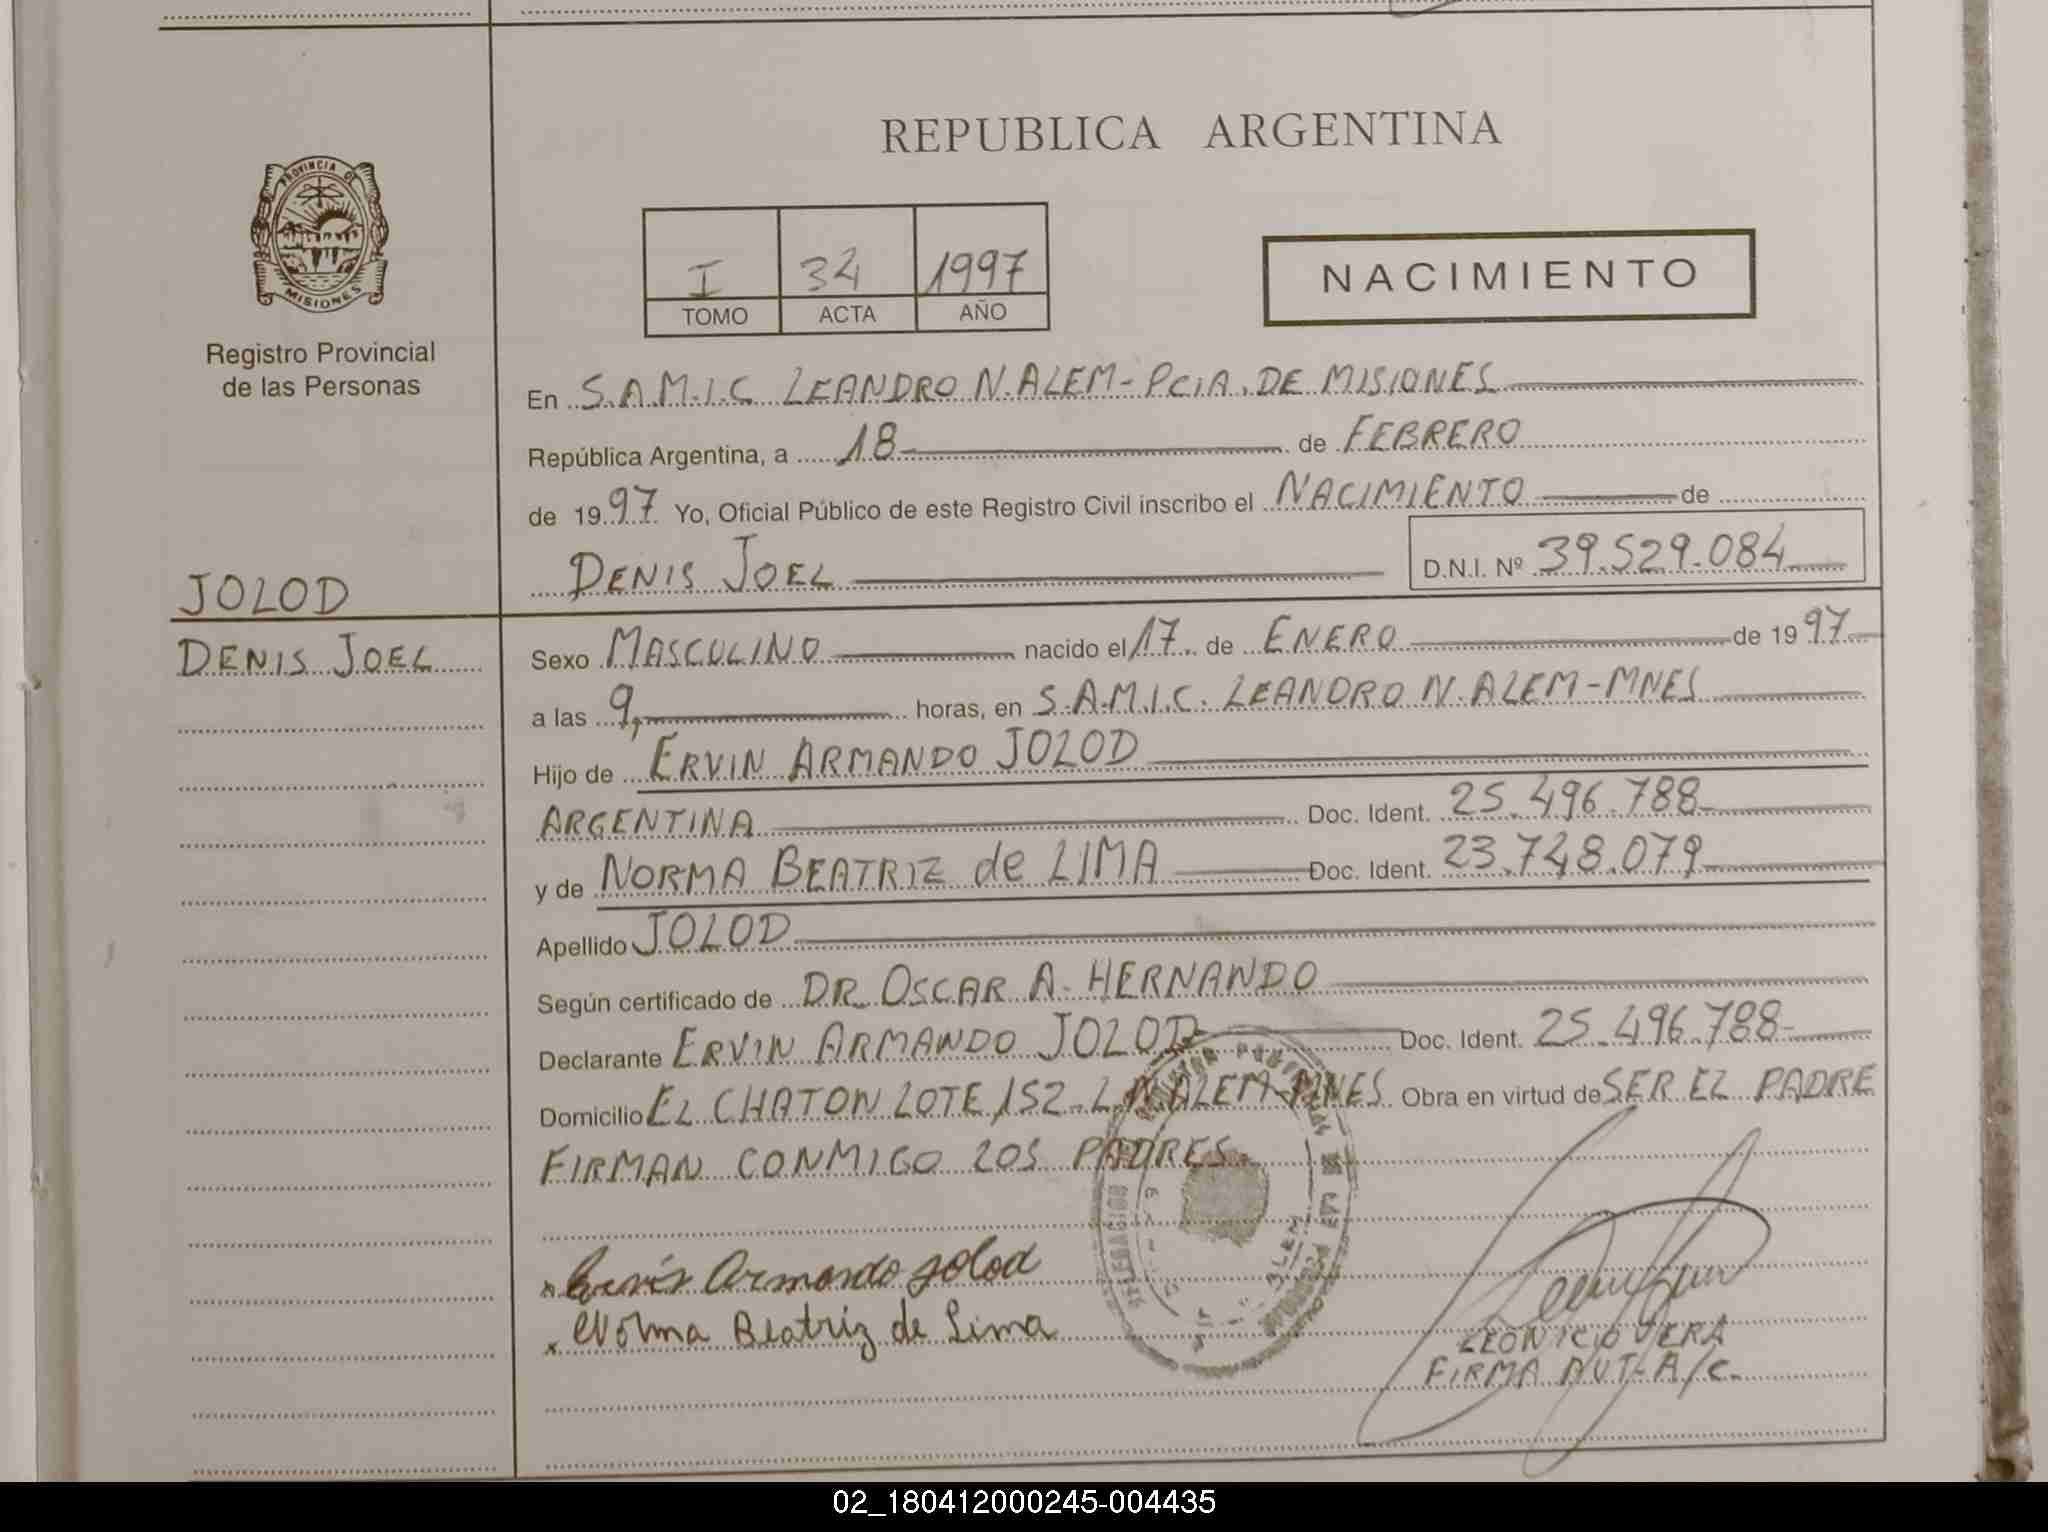 REPUBLICA ARGENTINA
PROVINCIA DE
MISIONES
Registro Provincial
de las Personas
I 34 1997
TOMO ACTA AÑO
NACIMIENTO
En S.A.M.I.C. LEANDRO N. ALEM - PCIA. DE MISIONES
República Argentina, a 18 de FEBRERO
de 1997 Yo, Oficial Público de este Registro Civil inscribo el NACIMIENTO de
DENIS JOEL D.N.I. Nº 39.529.084
JOLOD
DENIS JOEL
Sexo MASCULINO nacido el 17 de ENERO de 1997
a las 9, horas, en S.A.M.I.C. LEANDRO N. ALEM - MNES
Hijo de ERVIN ARMANDO JOLOD
ARGENTINA Doc. Ident. 25.496.788
y de NORMA BEATRIZ de LIMA Doc. Ident. 23.748.079
Apellido JOLOD
Según certificado de DR. OSCAR A. HERNANDO
Declarante ERVIN ARMANDO JOLOD Doc. Ident. 25.496.788
Domicilio EL CHATON LOTE 152 - L.N. ALEM - MNES Obra en virtud de SER EL PADRE
FIRMAN CONMIGO LOS PADRES.
x Ervin Armando Jolod
x Norma Beatriz de Lima
LEONICIO VERA
FIRMA AUT. A/C.
02_180412000245-004435